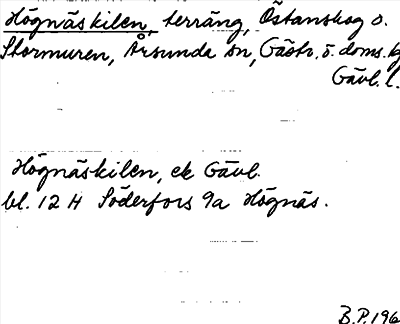 Högnäskilen, terräng, Östanskog o.
Stormuren, Årsunda sn, Gästr. ö. doms. tg
Gävl. l.
Högnäskilen, ek Gävl.
bl. 12 H Söderfors 9a Högnäs.
B.P. 196